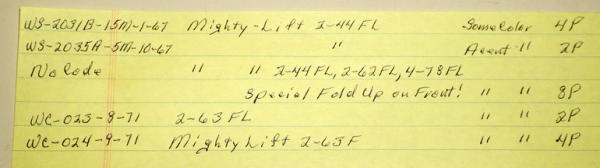 WS-2031B-15M-1-67 Mighty-Lift 2-44FL Some Color 4P
WS-2035A-5M-10-67 " Accent " 2P
No Code " " 2-44FL, 2-62FL, 4-78FL
Special Fold Up on Front! " " 8P
WC-023-9-71 2-63 FL " " 2P
WC-024-9-71 Mighty Lift 2-63F " " 4P